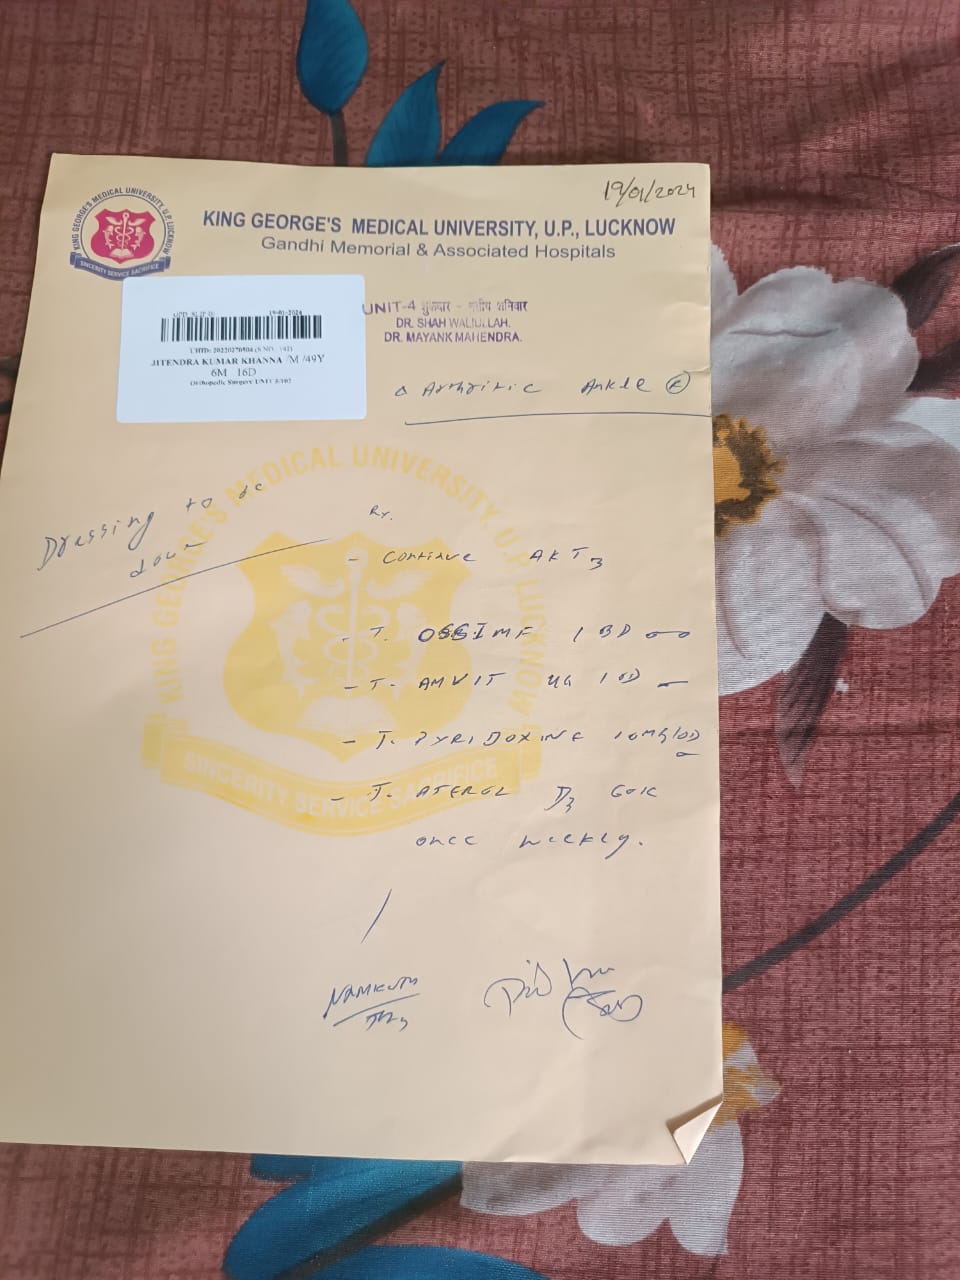 19/01/2024
KING GEORGE'S MEDICAL UNIVERSITY, U.P., LUCKNOW
Gandhi Memorial & Associated Hospitals
KING GEORGE'S MEDICAL UNIVERSITY, U.P. LUCKNOW
SINCERITY SERVICE SACRIFICE
OPD SLIP 19-01-2024
UHID: (S.NO.
JITENDRA KUMAR KHANNA /M /49Y
6M 16D
Orthopedic Surgery UNIT
UNIT-4 शुक्रवार - शनिवार
DR. SHAH WALIULLAH.
DR. MAYANK MAHENDRA.
Δ Arthritic Ankle
Dressing to be
Rx.
- Continue AKT3
- T. OSSIMF 1 BD
- T- AMVIT 1 OD
- T. PYRIDOXINE 10mg/OD
- T- ATEROL D3 60K
once weekly.
KING GEORGE'S MEDICAL UNIVERSITY, U.P. LUCKNOW
SINCERITY SERVICE SACRIFICE